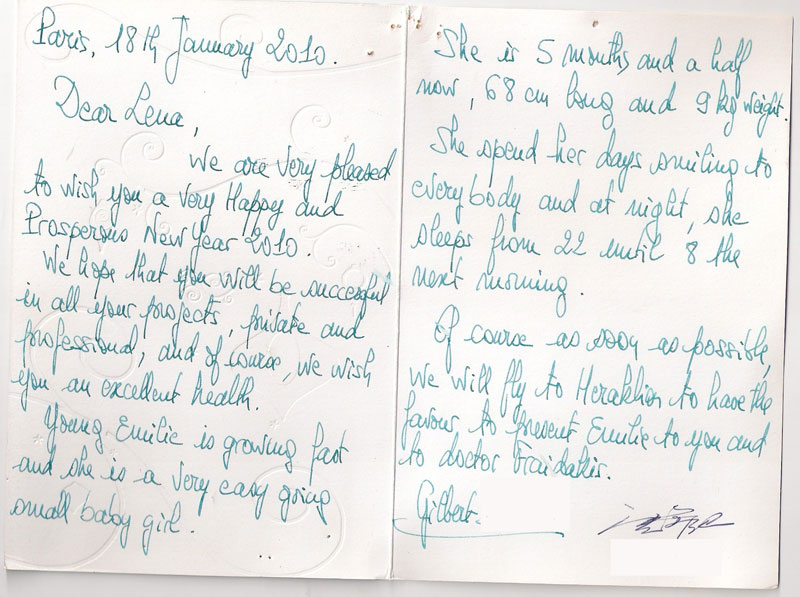 Paris, 18th January 2010.
Dear Lena,
We are very pleased
to wish you a very Happy and
Prosperous New Year 2010.
We hope that you will be successful
in all your projects, private and
professional, and of course, we wish
you an excellent health.
Young Emilie is growing fast
and she is a very easy going
small baby girl.
She is 5 months and a half
now, 68 cm long and 9 kg weight.
She spend her days smiling to
everybody and at night, she
sleeps from 22 until 8 the
next morning.
Of course as soon as possible,
we will fly to Heraklion to have the
favour to present Emilie to you and
to doctor Fraidakis.
Gilbert.